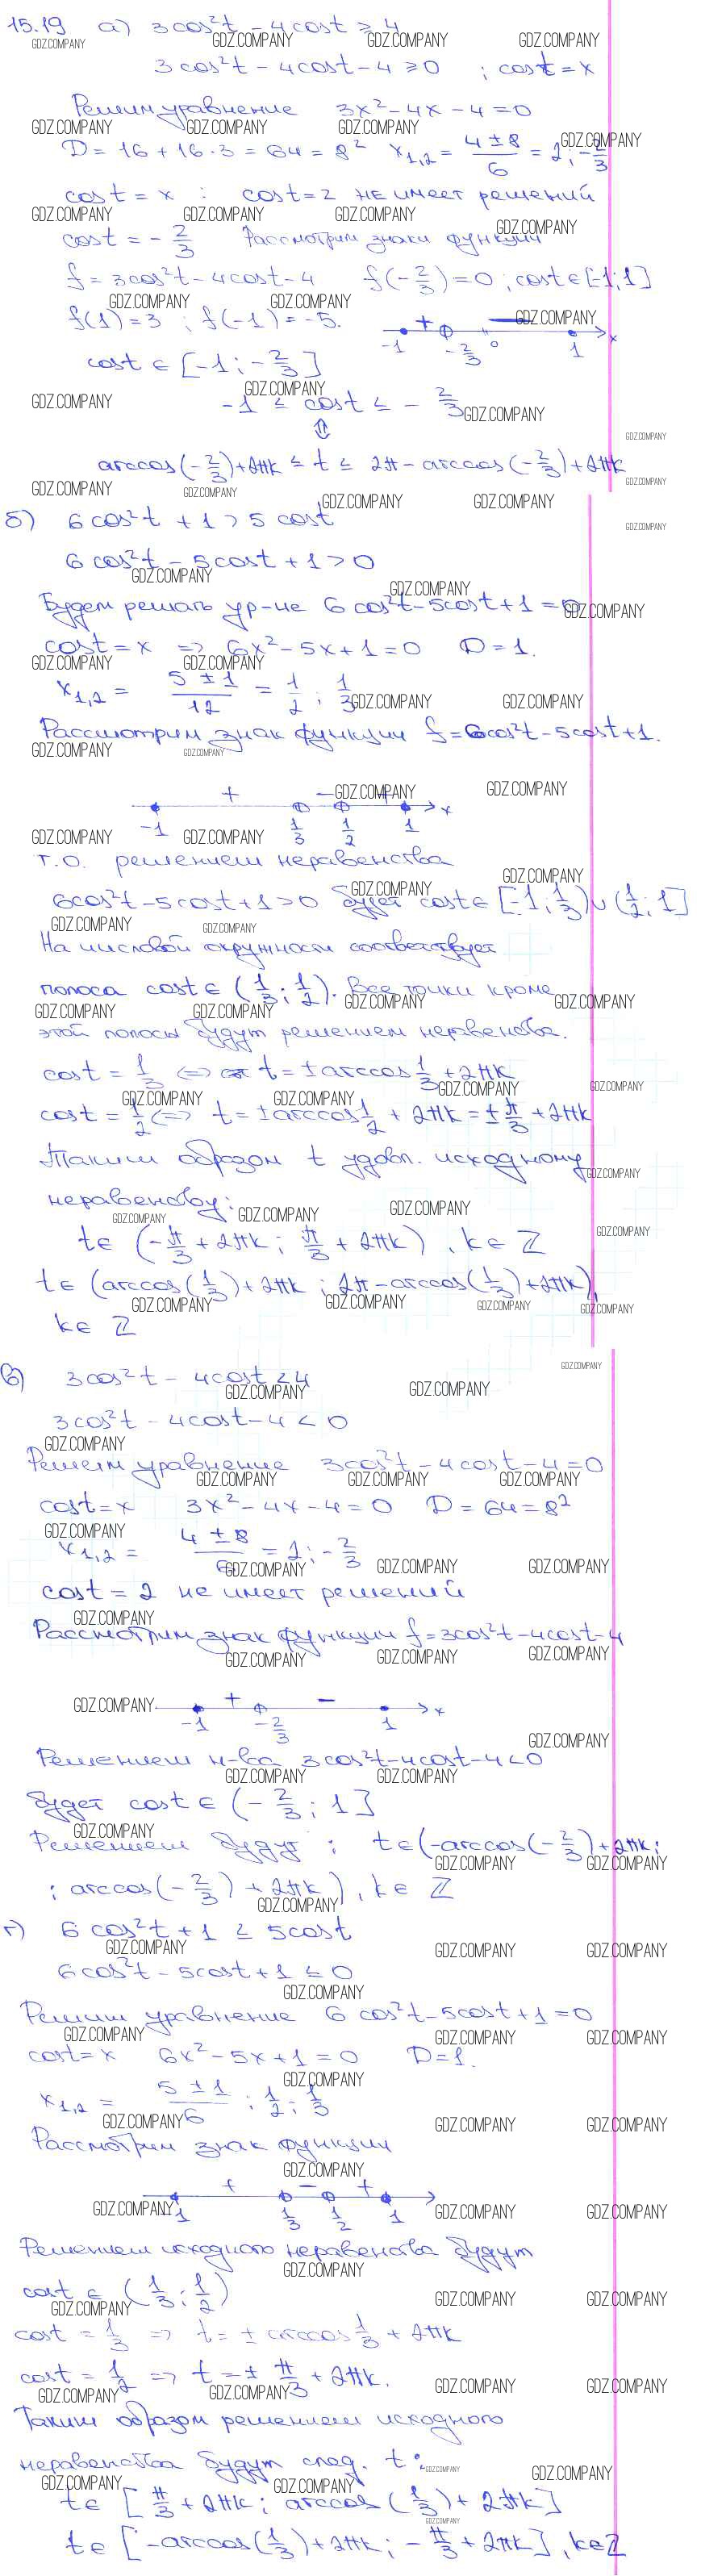 15.19 а) 3cos²t - 4cost ≥ 4
3cos²t - 4cost - 4 ≥ 0 ; cost = x
Решим уравнение 3x² - 4x - 4 = 0
D = 16 + 16·3 = 64 = 8² x₁,₂ = (4 ± 8)/6 = 2; -2/3
cost = x : cost = 2 не имеет решений
cost = -2/3 Рассмотрим знаки функции
f = 3cos²t - 4cost - 4 f(-2/3) = 0 ; cost ∈ [-1; 1]
f(1) = 3 ; f(-1) = -5.
+ −
-1 -2/3 0 1 x
cost ∈ [-1; -2/3]
-1 ≤ cost ≤ -2/3
⇕
arccos(-2/3) + 2πk ≤ t ≤ 2π - arccos(-2/3) + 2πk
б) 6cos²t + 1 > 5cost
6cos²t - 5cost + 1 > 0
Будем решать ур-ие 6cos²t - 5cost + 1 = 0
cost = x ⇒ 6x² - 5x + 1 = 0 D = 1.
x₁,₂ = (5 ± 1)/12 = 1/2 ; 1/3
Рассмотрим знак функции f = 6cos²t - 5cost + 1.
+ − +
-1 1/3 1/2 1 x
т.о. решением неравенства
6cos²t - 5cost + 1 > 0 будет cost ∈ [-1; 1/3) ∪ (1/2; 1]
На числовой окружности соответствует
полоса cost ∈ (1/3; 1/2). Все точки кроме
этой полосы будут решением неравенства.
cost = 1/3 ⇔ t = ± arccos 1/3 + 2πk
cost = 1/2 ⇔ t = ± arccos 1/2 + 2πk = ± π/3 + 2πk
Таким образом t удовл. исходному
неравенству:
t ∈ (-π/3 + 2πk ; π/3 + 2πk), k ∈ Z
t ∈ (arccos(1/3) + 2πk ; 2π - arccos(1/3) + 2πk),
k ∈ Z
в) 3cos²t - 4cost < 4
3cos²t - 4cost - 4 < 0
Решим уравнение 3cos²t - 4cost - 4 = 0
cost = x 3x² - 4x - 4 = 0 D = 64 = 8²
x₁,₂ = (4 ± 8)/6 = 2; -2/3
cost = 2 не имеет решений
Рассмотрим знак функции f = 3cos²t - 4cost - 4
+ −
-1 -2/3 1 x
Решением н-ва 3cos²t - 4cost - 4 < 0
будет cost ∈ (-2/3; 1]
Решением будут : t ∈ (-arccos(-2/3) + 2πk;
; arccos(-2/3) + 2πk), k ∈ Z
г) 6cos²t + 1 ≤ 5cost
6cos²t - 5cost + 1 ≤ 0
Решим уравнение 6cos²t - 5cost + 1 = 0
cost = x 6x² - 5x + 1 = 0 D = 1.
x₁,₂ = (5 ± 1)/6 ; 1/2 ; 1/3
Рассмотрим знак функции
+ − +
-1 1/3 1/2 1
Решением исходного неравенства будут
cost ∈ (1/3; 1/2)
cost = 1/3 ⇒ t = ± arccos 1/3 + 2πk
cost = 1/2 ⇒ t = ± π/3 + 2πk.
Таким образом решением исходного
неравенства будут след. t:
t ∈ [π/3 + 2πk; arccos(1/3) + 2πk]
t ∈ [-arccos(1/3) + 2πk; -π/3 + 2πk], k ∈ Z
GDZ.COMPANY